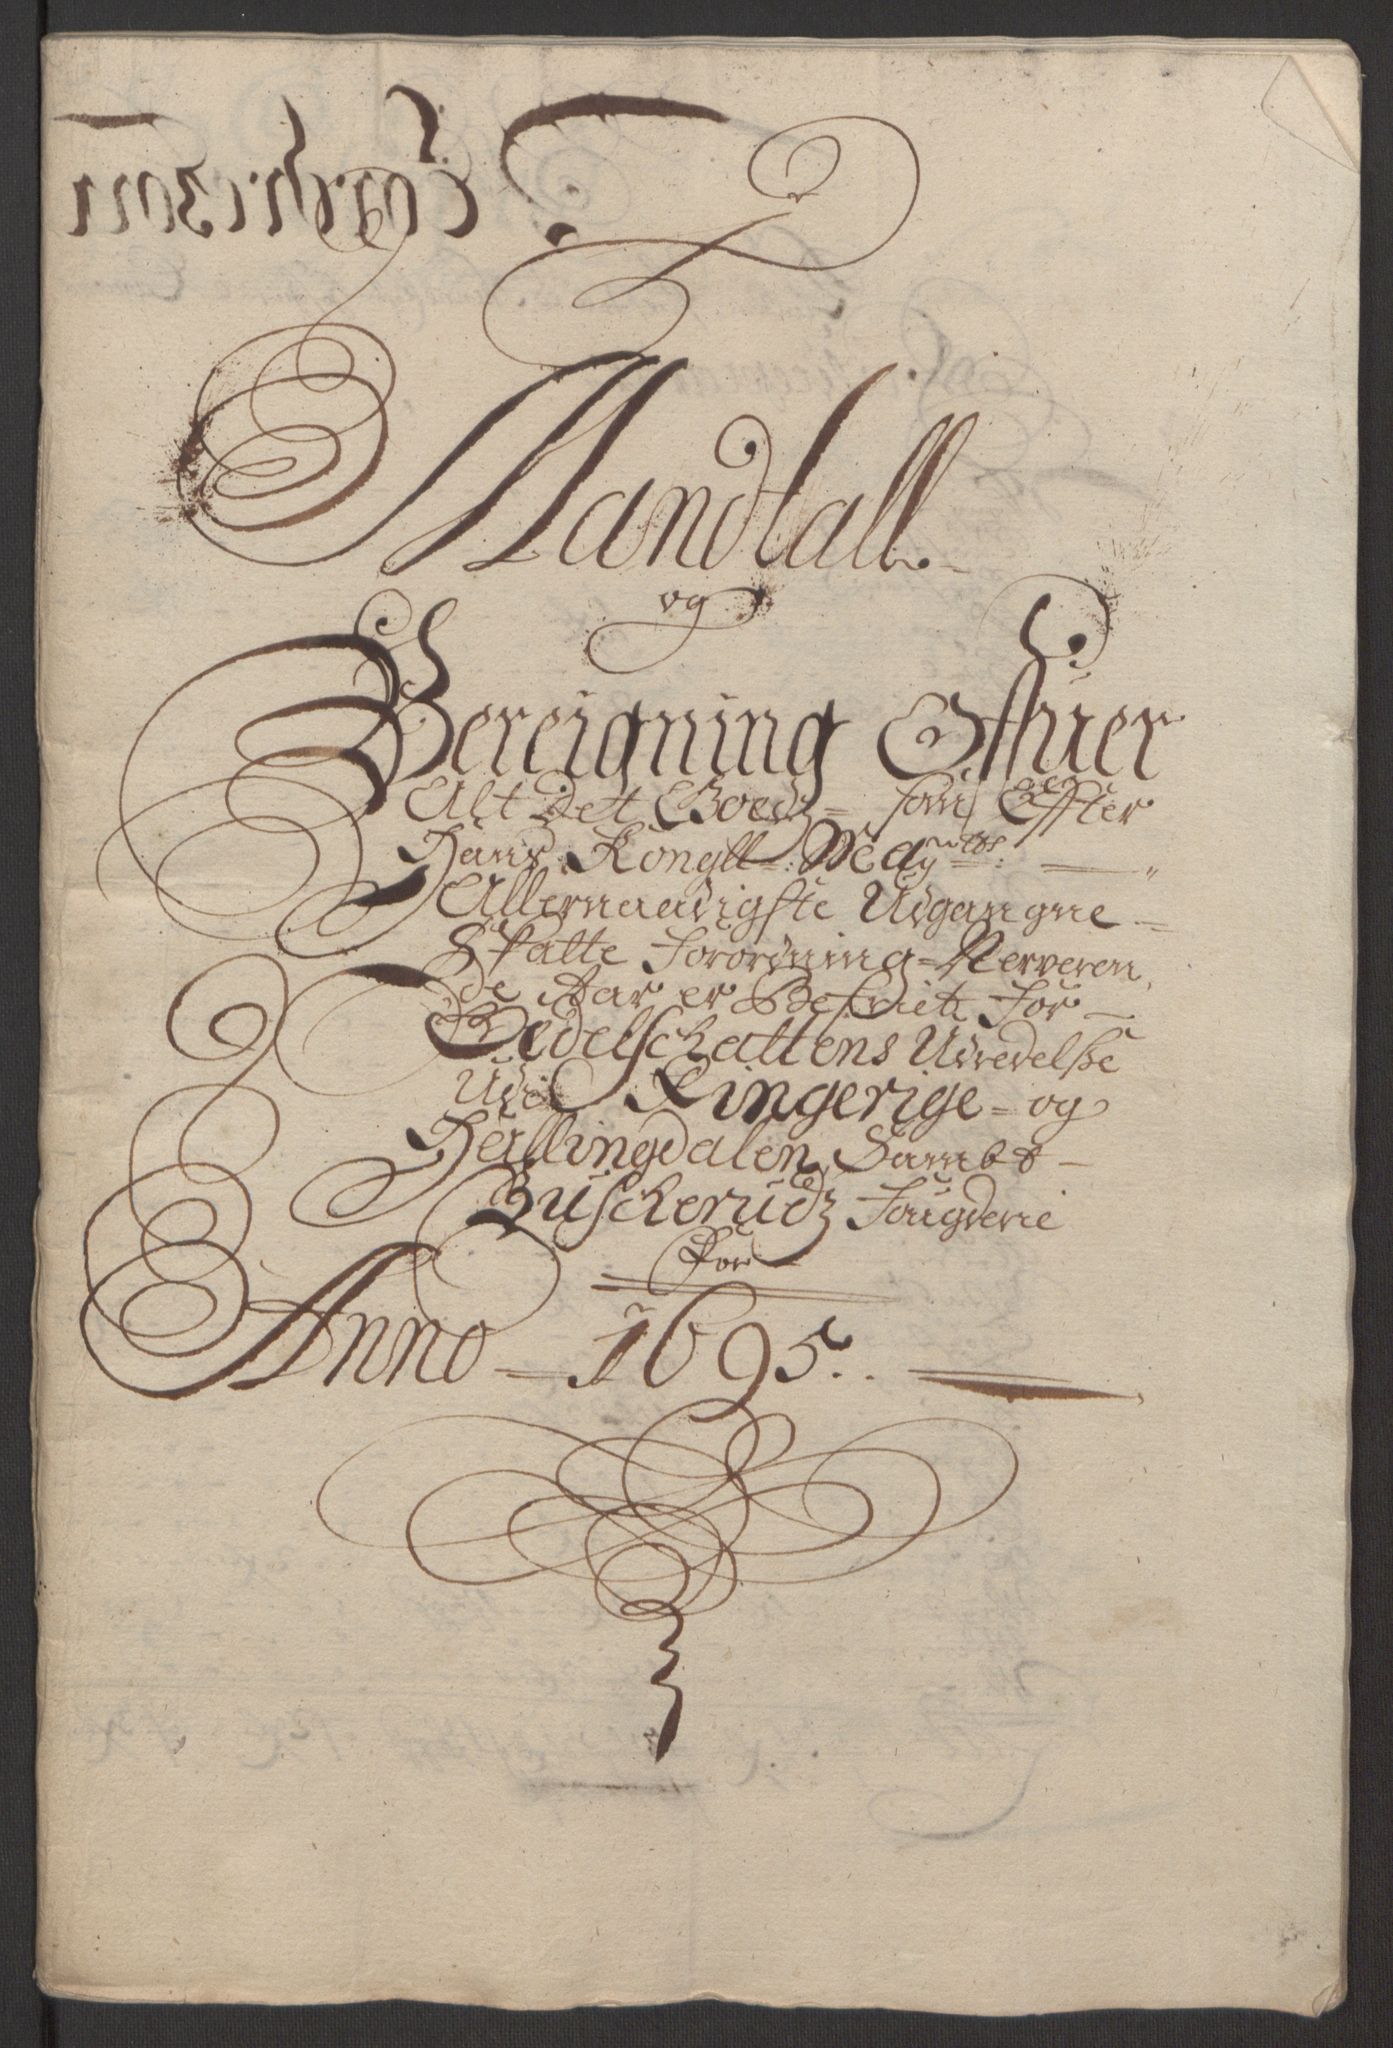 Mandtall
og
Bereigning Offuer
Alt det Goedz som Effter
Hans Kongll: Mayts:
Allernaadigste Udgangne
Skatte forordning Nerveren
de Aar er Befriet for
Oedelschattens Udredelsze
Udi Ringerige og
Hallingdalen Sambt
Buscheruds fougderie
for
Anno 1695.